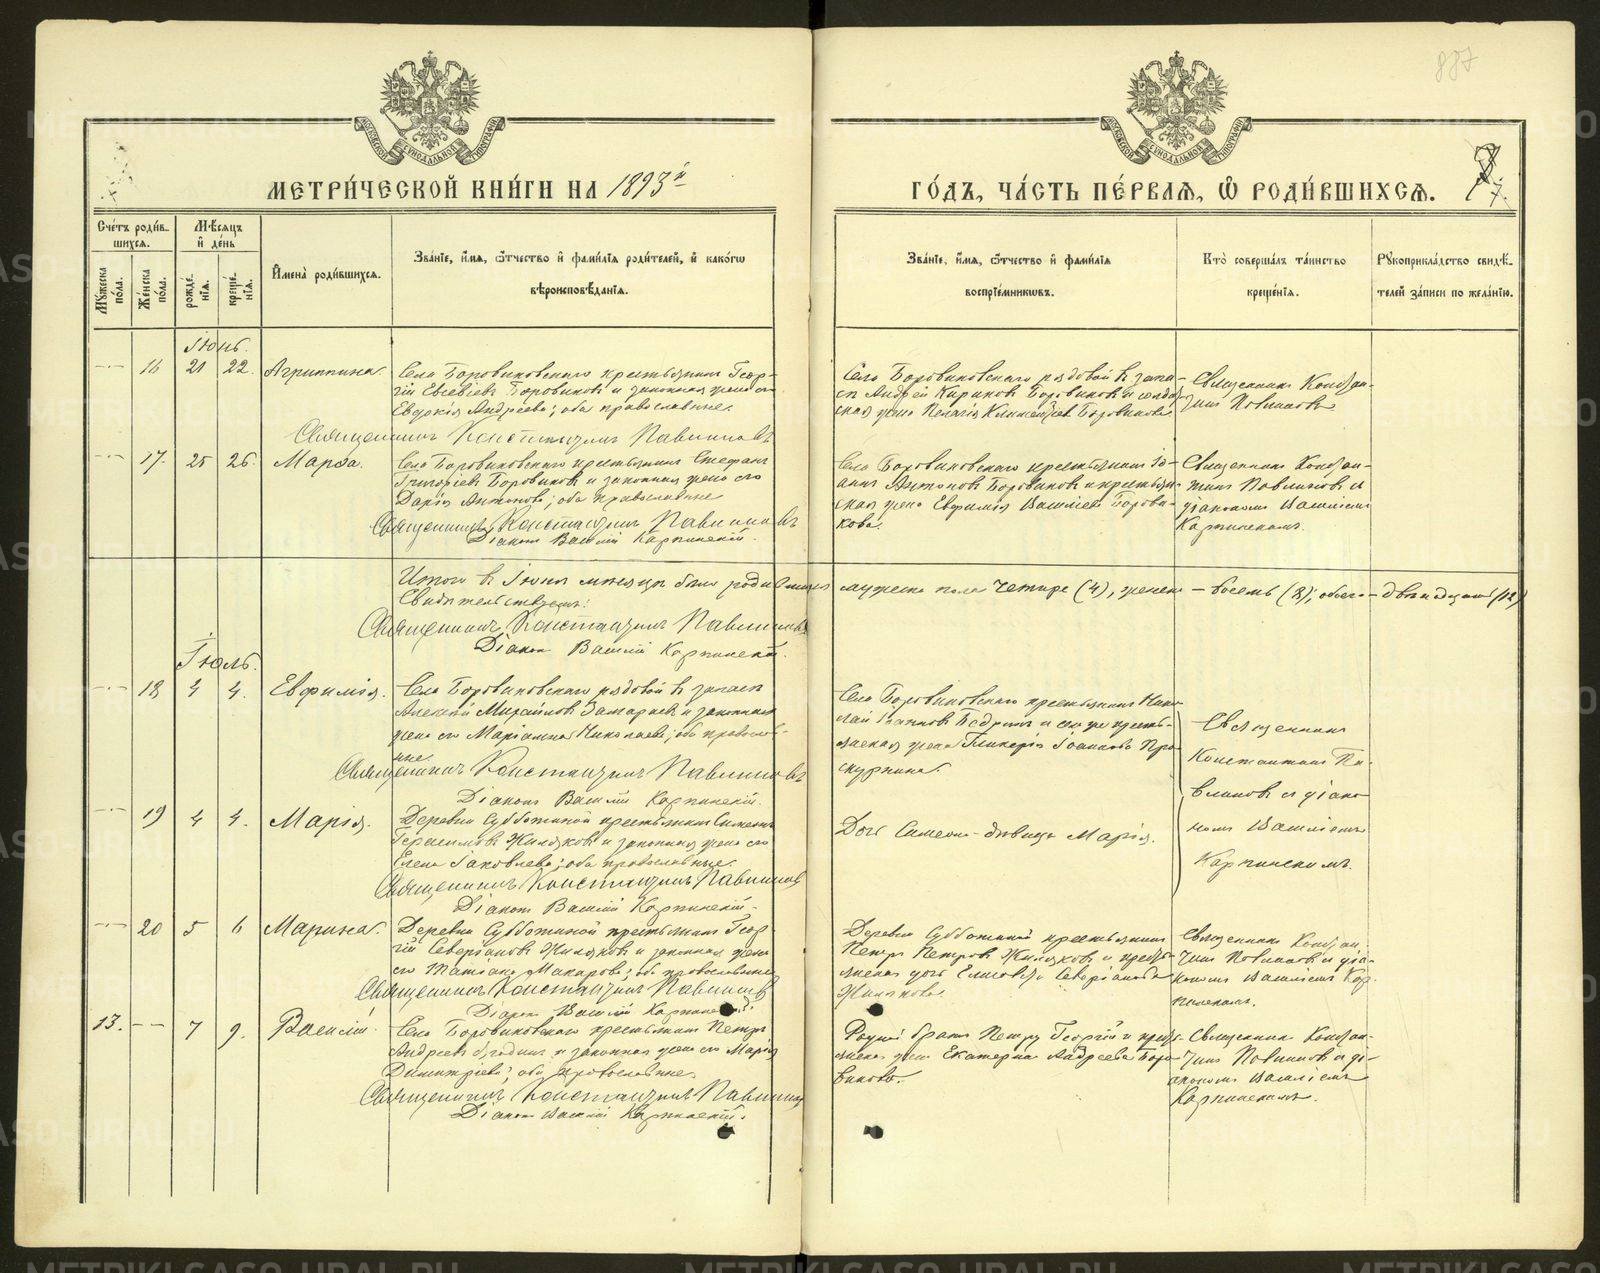 887
МОСКОВСКОЙ СѴНОДАЛЬНОЙ ТИПОГРАФІИ
МОСКОВСКОЙ СѴНОДАЛЬНОЙ ТИПОГРАФІИ
МЕТРИ́ЧЕСКОЙ КНИ́ГИ НА 1893й
ГО́ДЪ, ЧА́СТЬ ПЕ́РВАѦ, Ѡ҆ РОДИ́ВШИХСѦ. 7.
Сче́тъ роди́в-
шихсѧ.
Мꙋ́жеска по́ла.
Же́нска по́ла.
Мѣ́сѧцъ
и҆ де́нь
рожде́-
нїѧ.
креще́-
нїѧ.
И҆мена̀ роди́вшихсѧ.
Зва́нїе, и҆́мѧ, ѻ҆́тчество и҆ фами́лїѧ роди́телей, и҆ како́гѡ
вѣроисповѣ́данїѧ.
Зва́нїе, и҆́мѧ, ѻ҆́тчество и҆ фами́лїѧ
воспрїе́мникѡвъ.
Кто̀ соверша́лъ та́инство
креще́нїѧ.
Рꙋкоприкла́дство свидѣ́-
телей за́писи по жела́нїю.
Іюнь.
16 21 22. Агриппина.
Села Боровиковскаго крестьянинъ Геор-
гій Евсевіевъ Боровиковъ и законная жена его
Евдокія Андреева; оба православные.
Священникъ Константинъ Павлиновъ
Села Боровиковскаго рядовой въ запа-
сѣ Андрей Кириковъ Боровиковъ и солдат-
ская жена Пелагія Климентіева Боровикова.
Священникъ Констан-
тинъ Павлиновъ
17. 25 26. Марѳа.
Села Боровиковскаго крестьянинъ Стефанъ
Григорьевъ Боровиковъ и законная жена его
Дарія Антонова; оба православные
Священникъ Константинъ Павлиновъ
Діаконъ Василій Карпинскій.
Села Боровиковскаго крестьянинъ Іо-
аннъ Антоновъ Боровиковъ и крестьян-
ская жена Евфимія Васильева Борови-
кова.
Священникъ Констан-
тинъ Павлиновъ съ
діакономъ Василіемъ
Карпинскимъ.
Итого въ Іюнѣ мѣсяцѣ было родившихся мужеска пола четыре (4), женска – восемь (8); обоего – двѣнадцать (12)
Свидѣтельствуемъ:
Священникъ Константинъ Павлиновъ
Діаконъ Василій Карпинскій.
Іюль.
18 4 4. Евфимія.
Села Боровиковскаго рядовой въ запасѣ
Алексѣй Михайловъ Замараевъ и законная
жена его Маріамна Николаева; оба православ-
ные.
Священникъ Константинъ Павлиновъ
Діаконъ Василій Карпинскій.
Села Боровиковскаго крестьянинъ Нико-
лай
кресть-
янская жена Гликерія Іоаннова Про-
скурнина.
Священникъ
Константинъ Па-
влиновъ съ діако-
номъ Василіемъ
Карпинскимъ.
19 4 4. Марія.
Деревни Субботиной крестьянинъ Симеонъ
Герасимовъ Жиляковъ и законная жена его
Елена Іаковлева; оба православные.
Священникъ Константинъ Павлиновъ
Діаконъ Василій Карпинскій.
Дочь Симеона – дѣвица Марія.
20 5 6 Марина.
Деревни Субботиной крестьянинъ Геор-
гій Северіановъ Жиляковъ и законная жена
его Татіана Макарова; оба православные
Священникъ Константинъ Павлиновъ
Діаконъ Василій Карпинскій.
Деревни Субботиной крестьянинъ
Петръ Петровъ Жиляковъ и кресть-
янская дочь Елисавета Северіанова
Жилякова.
Священникъ Констан-
тинъ Павлиновъ съ діа-
кономъ Василіемъ Кар-
пинскимъ.
13. 7 9. Василій.
Села Боровиковскаго крестьянинъ Петръ
Андреевъ и законная жена его Марія
Димитріева; оба православные.
Священникъ Константинъ Павлиновъ
Діаконъ Василій Карпинскій.
Родной братъ Петру Георгій и кресть-
янская Екатерина Андреева Боро-
викова.
Священникъ Констан-
тинъ Павлиновъ съ ді-
акономъ Василіемъ
Карпинскимъ.